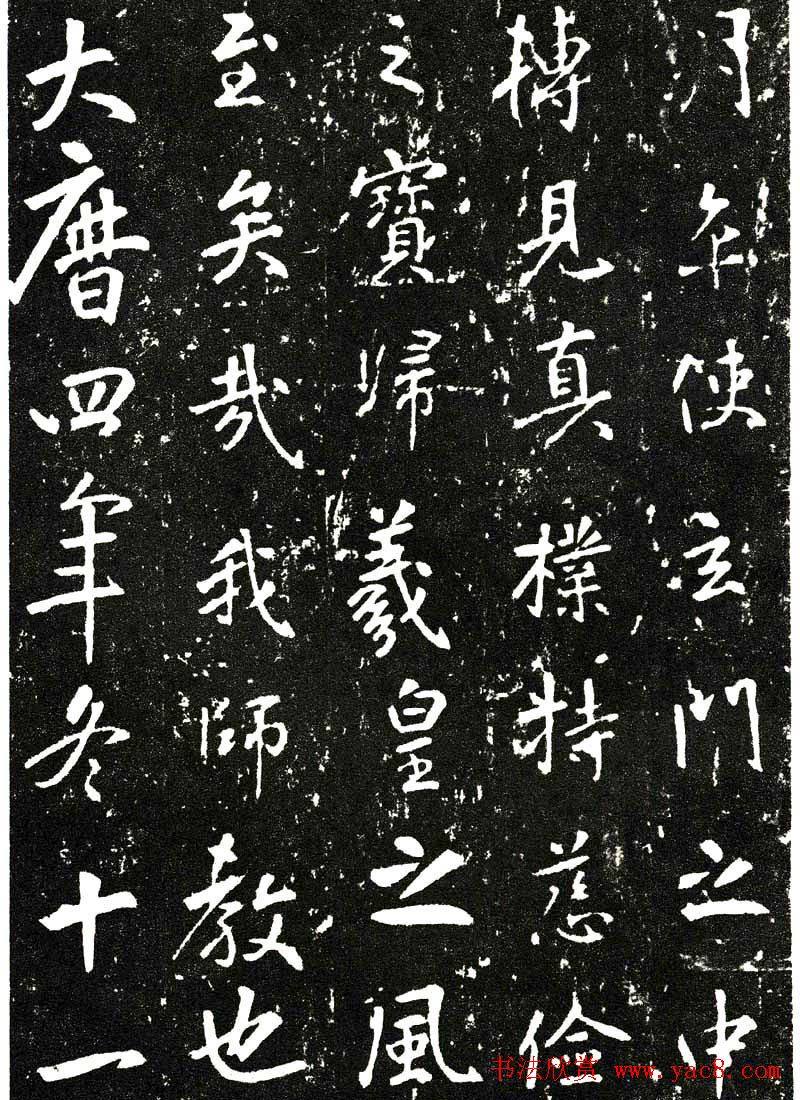 月卒使玄門之中
摶見真樸持慈儉
之寶歸羲皇之風
至矣哉我師教也
大曆四年冬十一
书法欣赏 www.yac8.com